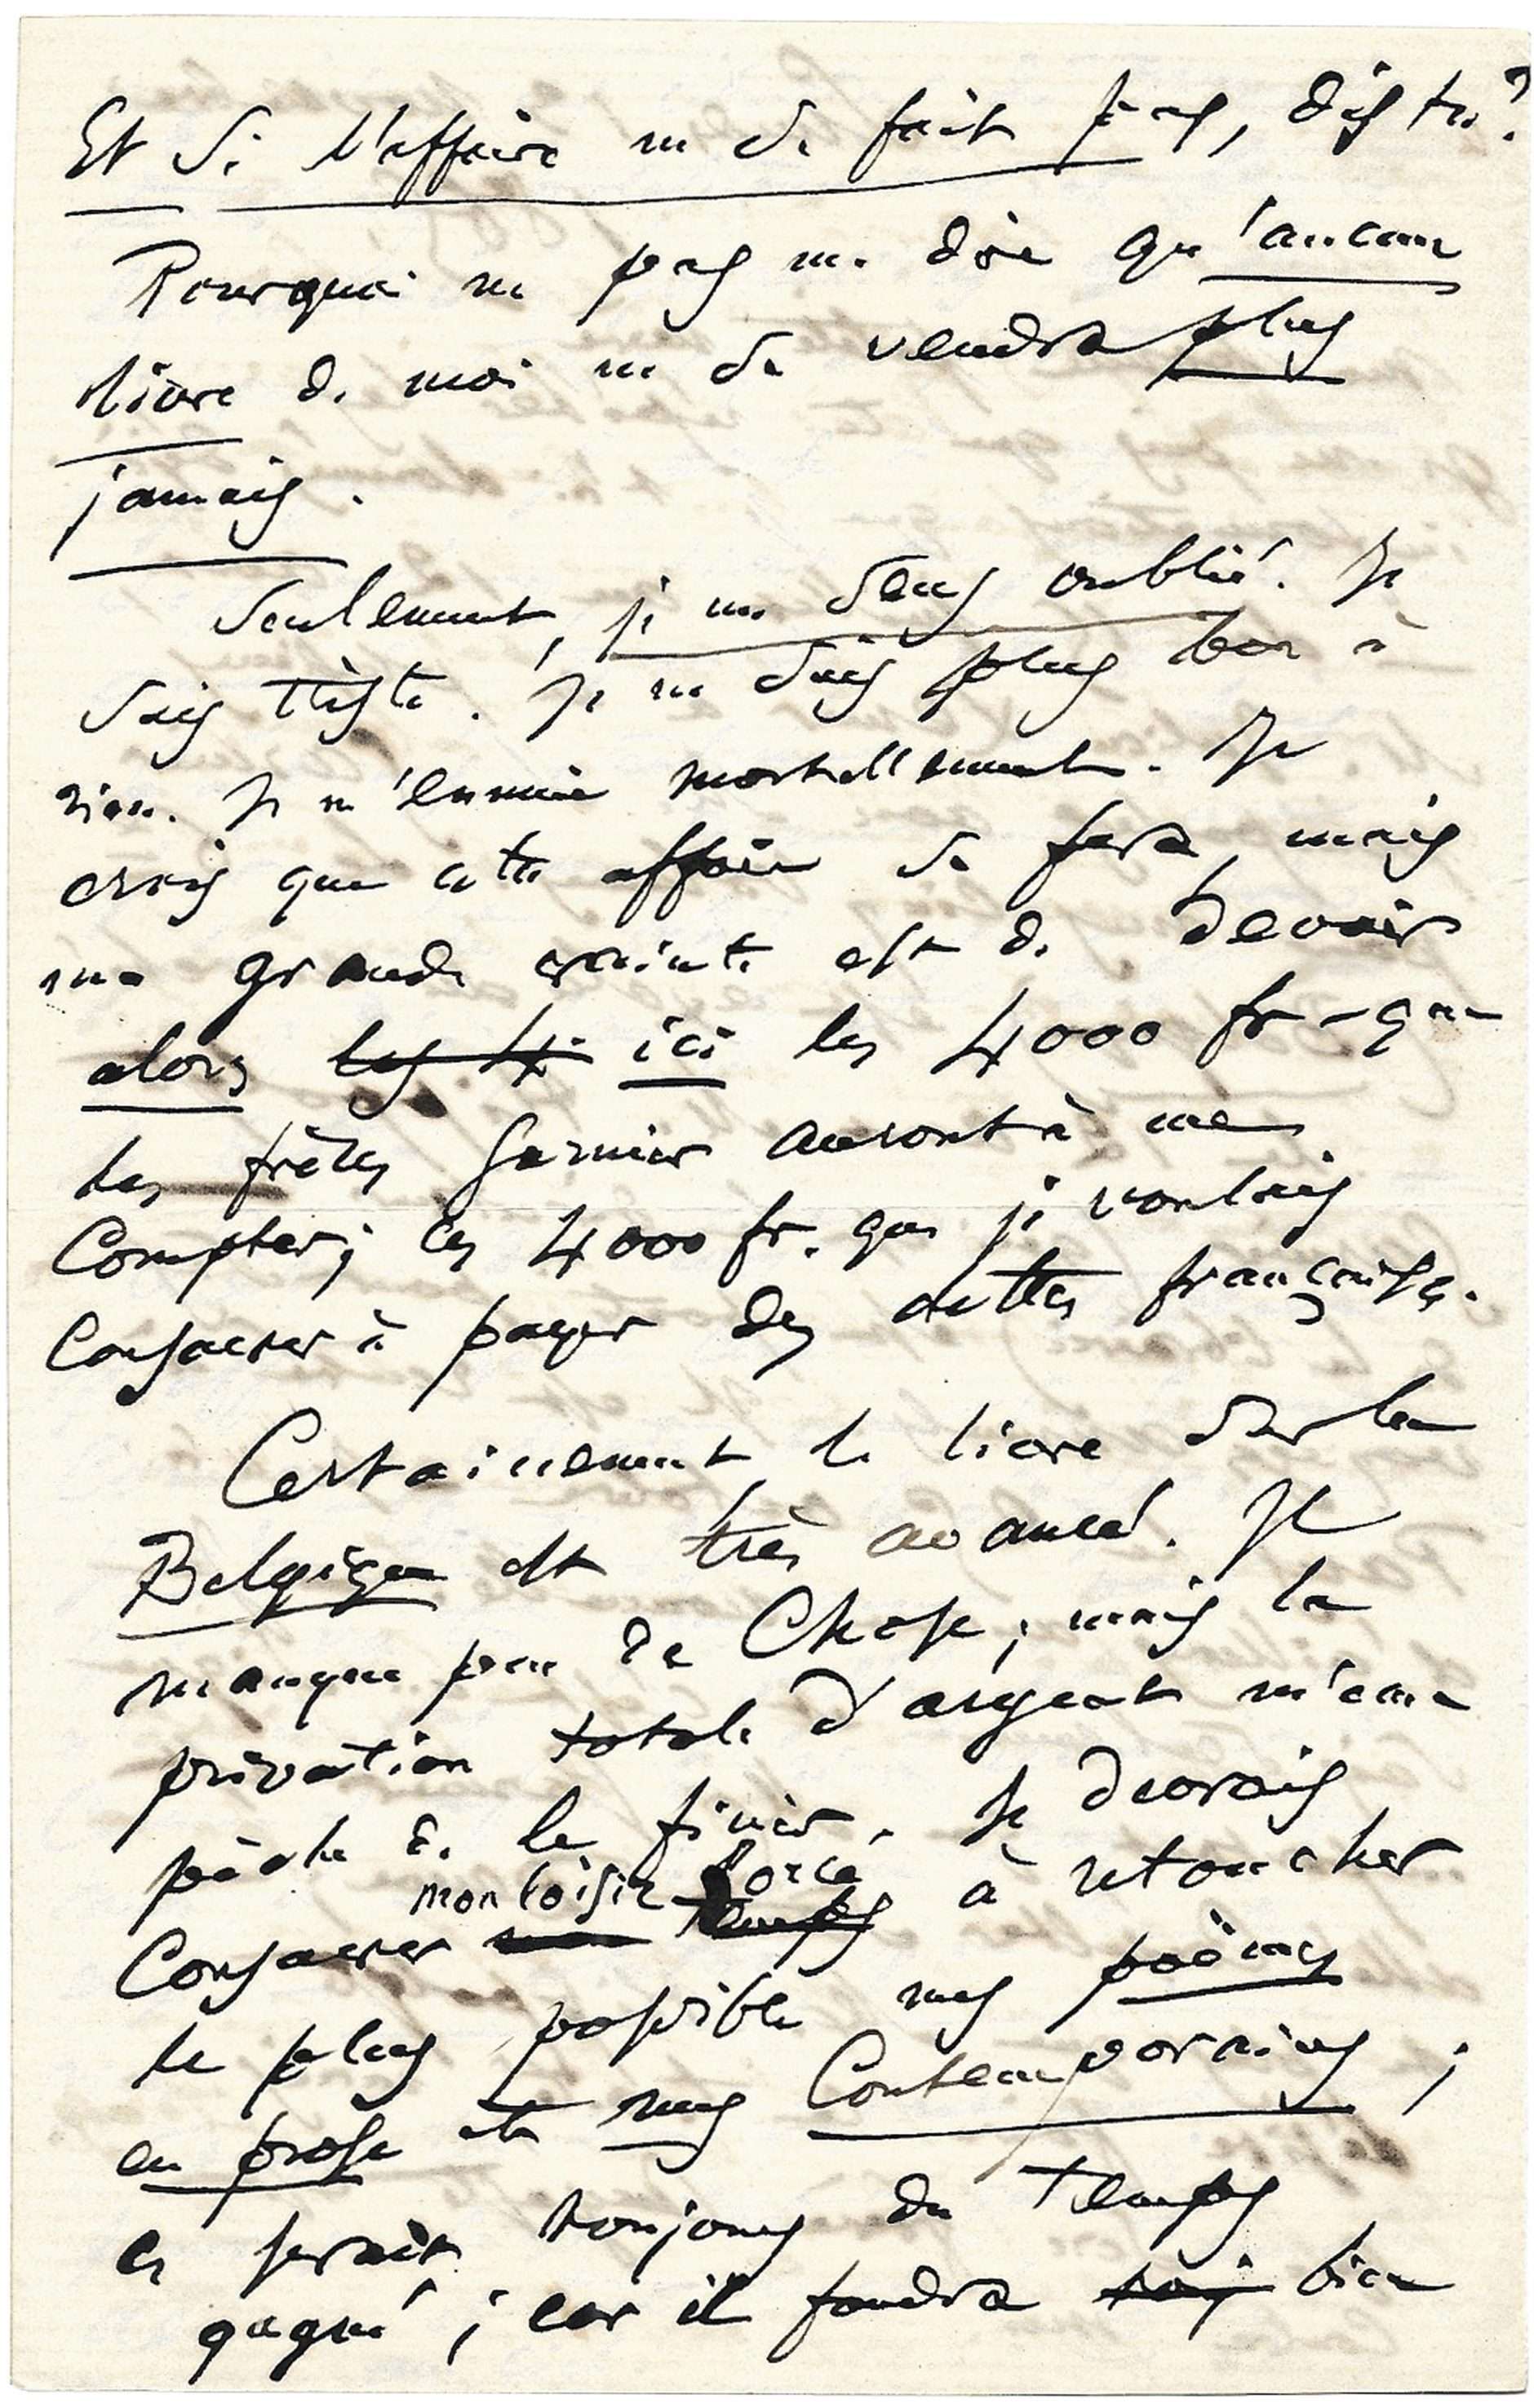 Et si l'affaire ne se fait pas, dis tu?
Pourquoi ne pas me dire qu'aucun
livre de moi ne se vendra plus
jamais.
Seulement, je me sens oublié. Je
suis triste. Je ne suis plus bon à
rien. Je m'ennuie mortellement. Je
crois que cette affaire se fera, mais
ma grande crainte est de devoir
alors les 4 ici les 4000 fr - que
les frères Garnier auront à me
compter; les 4000 fr. que je voulais
consacrer à payer des dettes françaises.
Certainement, le livre sur la
Belgique est très avancé. Il
manque peu de chose; mais la
privation totale d'argent m'em
pêche de le finir. Je devrais
mon loisir forcé
consacrer mon temps à retoucher
le plus possible mes poëmes
en prose et mes Contemporains;
ce serait toujours du temps
gagné; car il faudra bien